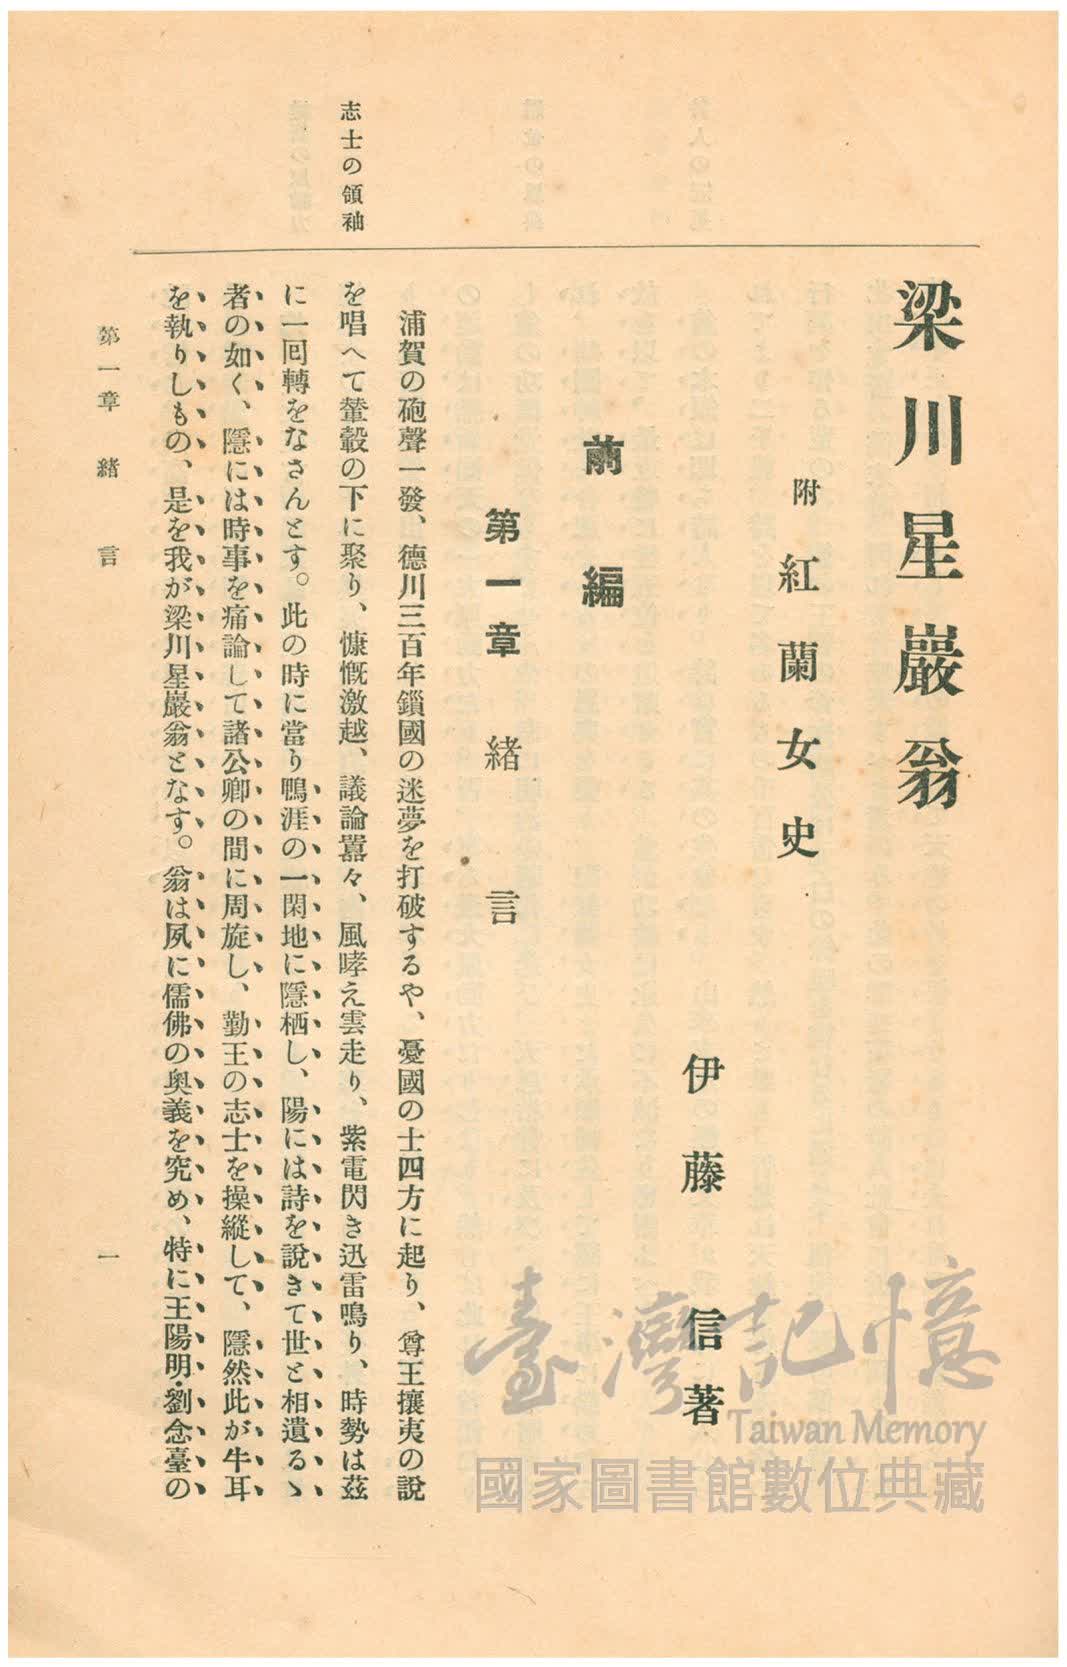 梁川星巖翁
附 紅蘭女史
伊藤 信著
前編
第一章 緒言
志士の領袖
浦賀の砲聲一發、德川三百年鎖國の迷夢を打破するや、憂國の士四方に起り、尊王攘夷の說
を唱へて輦轂の下に聚り、慷慨激越、議論囂々、風哮え雲走り、紫電閃き迅雷鳴り、時勢は茲
に一回轉をなさんとす。此の時に當り鴨涯の一閑地に隱栖し、陽には詩を說きて世と相遺るゝ
者の如く、隱には時事を痛論して諸公卿の間に周旋し、勤王の志士を操縱して、隱然此が牛耳
を執りしもの、是を我が梁川星巖翁となす。翁は夙に儒佛の奧義を究め、特に王陽明・劉念臺の
第一章 緒言
一
臺灣記憶
Taiwan Memory
國家圖書館數位典藏